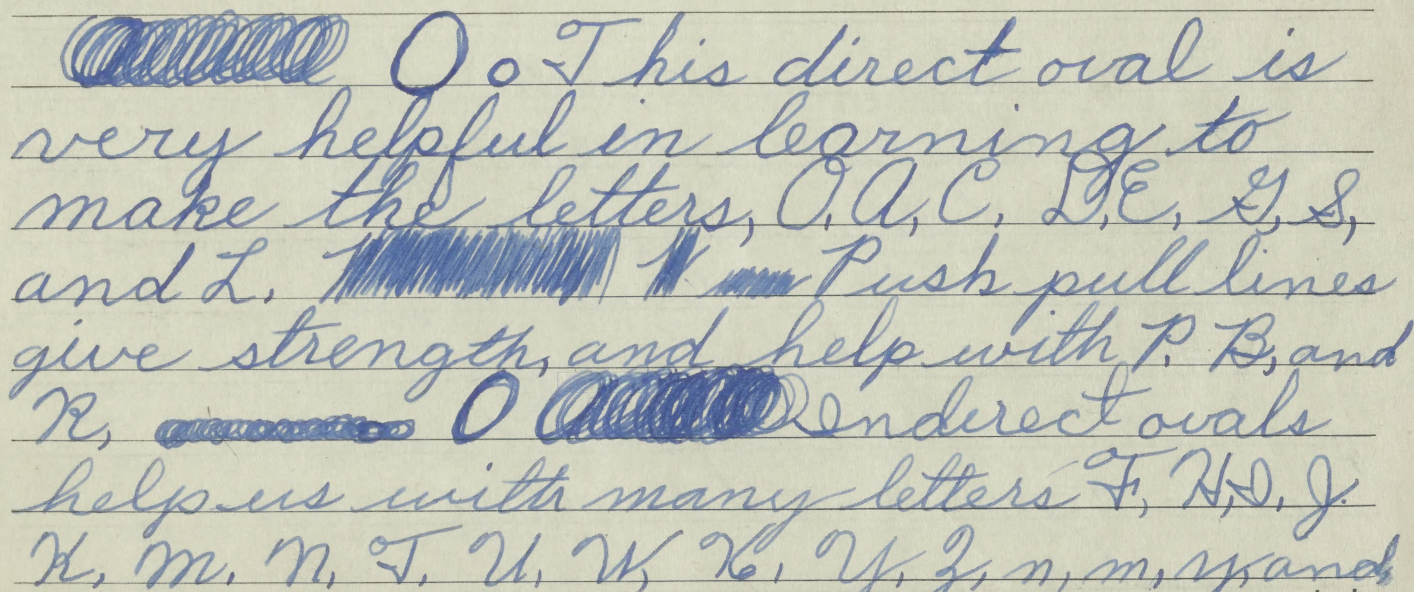 O o This direct oval is
very helpful in learning to
make the letters, O, A, C, D, E, G, S,
and L. Push pull lines
give strength, and help with P. B, and
R, O Indirect ovals
help us with many letters F, H, I, J.
K, M, N, T, U, W, X, Y, Z, n, m, y, and